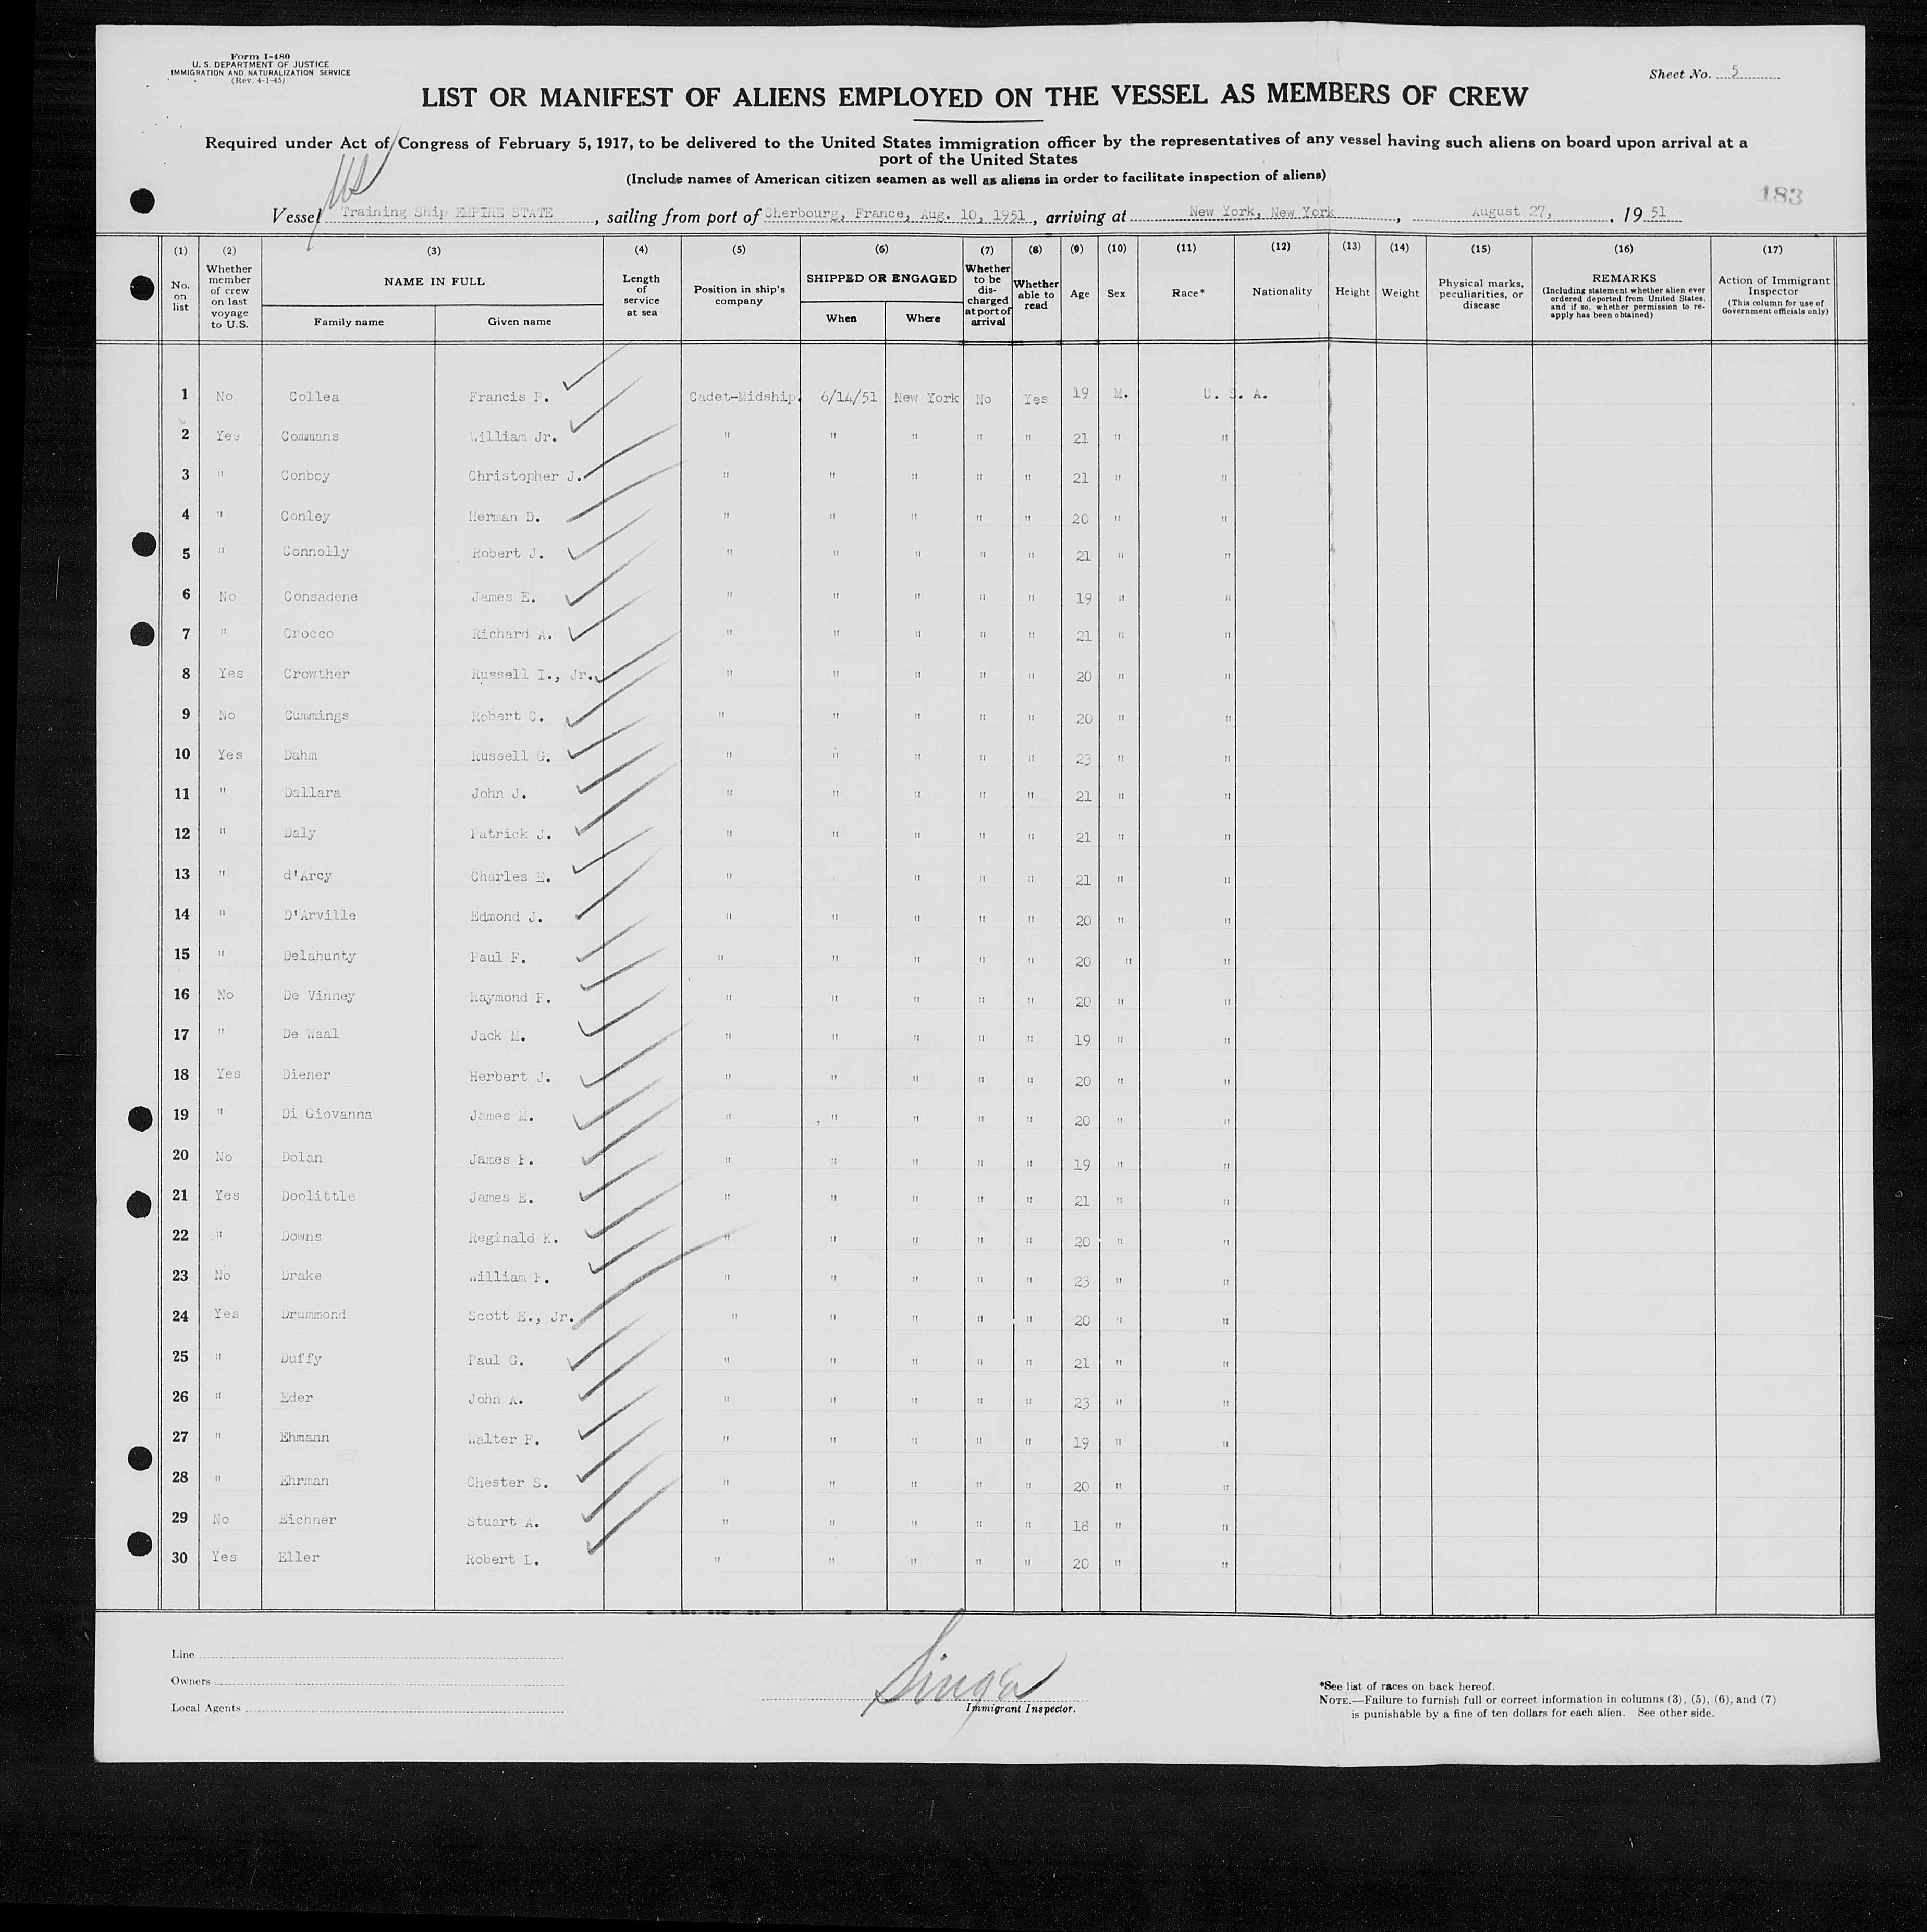 Form I-480
U. S. DEPARTMENT OF JUSTICE
IMMIGRATION AND NATURALIZATION SERVICE
(Rev. 4-1-45)
Sheet No. 5
LIST OR MANIFEST OF ALIENS EMPLOYED ON THE VESSEL AS MEMBERS OF CREW
Required under Act of Congress of February 5, 1917, to be delivered to the United States immigration officer by the representatives of any vessel having such aliens on board upon arrival at a
port of the United States
(Include names of American citizen seamen as well as aliens in order to facilitate inspection of aliens)
183
Vessel Training Ship EMPIRE STATE, sailing from port of Cherbourg, France, Aug. 10, 1951, arriving at New York, New York, August 27, 1951
(1) No. on list (2) Whether member of crew on last voyage to U.S. (3) NAME IN FULL Family name Given name (4) Length of service at sea (5) Position in ship's company (6) SHIPPED OR ENGAGED When Where (7) Whether to be discharged at port of arrival (8) Whether able to read (9) Age (10) Sex (11) Race* (12) Nationality (13) Height (14) Weight (15) Physical marks, peculiarities, or disease (16) REMARKS (Including statement whether alien ever ordered deported from United States, and if so, whether permission to re-apply has been obtained) (17) Action of Immigrant Inspector (This column for use of Government officials only)
1 No Collea Francis P. Cadet-Midship. 6/14/51 New York No Yes 19 M. U. S. A.
2 Yes Commans William Jr. " " " " " 21 " "
3 " Conboy Christopher J. " " " " " 21 " "
4 " Conley Herman D. " " " " " 20 " "
5 " Connolly Robert J. " " " " " 21 " "
6 No Consadene James E. " " " " " 19 " "
7 " Crocco Richard A. " " " " " 21 " "
8 Yes Crowther Russell I., Jr. " " " " " 20 " "
9 No Cummings Robert C. " " " " " 20 " "
10 Yes Dahm Russell G. " " " " " 23 " "
11 " Dallara John J. " " " " " 21 " "
12 " Daly Patrick J. " " " " " 21 " "
13 " d'Arcy Charles E. " " " " 21 " "
14 " D'Arville Edmond J. " " " " " 20 " "
15 " Delahunty Paul F. " " " " " 20 " "
16 No De Vinney Raymond F. " " " " " 20 " "
17 " De Waal Jack M. " " " " " 19 " "
18 Yes Diener Herbert J. " " " " " 20 " "
19 " Di Giovanna James M. " " " " " 20 " "
20 No Dolan James " " " " " 19 " "
21 Yes Doolittle James E. " " " " " 21 " "
22 " Downs Reginald K. " " " " " 20 " "
23 No Drake William " " " " " 23 " "
24 Yes Drummond Scott E., Jr. " " " " " 20 " "
25 " Duffy Paul G. " " " " " 21 " "
26 " Eder John A. " " " " " 23 " "
27 " Ehmann Walter F. " " " " " 19 " "
28 " Ehrman Chester S. " " " " " 20 " "
29 No Eichner Stuart A. " " " " " 18 " "
30 Yes Eller Robert L. " " " " " 20 " "
Line
Owners
Local Agents
Singer
Immigrant Inspector.
*See list of races on back hereof.
NOTE.—Failure to furnish full or correct information in columns (3), (5), (6), and (7)
is punishable by a fine of ten dollars for each alien. See other side.